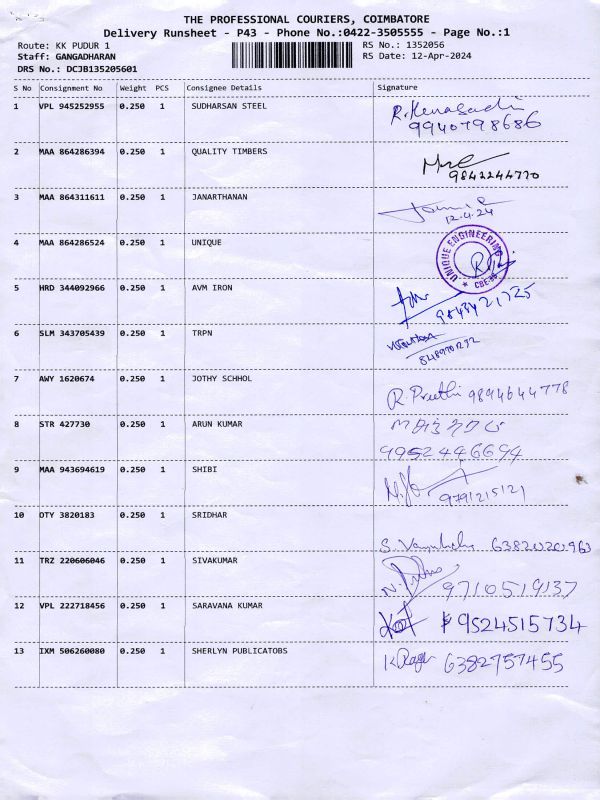 THE PROFESSIONAL COURIERS, COIMBATORE
Delivery Runsheet - P43 - Phone No.:0422-3505555 - Page No.:1
Route: KK PUDUR 1 RS No.: 1352056
Staff: GANGADHARAN RS Date: 12-Apr-2024
DRS No.: DCJB135205601
S No Consignment No Weight PCS Consignee Details Signature
1 VPL 945252955 0.250 1 SUDHARSAN STEEL
9940798686
2 MAA 864286394 0.250 1 QUALITY TIMBERS
9842244770
3 MAA 864311611 0.250 1 JANARTHANAN
12.4.24
4 MAA 864286524 0.250 1 UNIQUE UNIQUE ENGINEERING
5 HRD 344092966 0.250 1 AVM IRON
9843421725
6 SLM 343705439 0.250 1 TRPN
7 AWY 1620674 0.250 1 JOTHY SCHHOL R. Preethi 9894644778
8 STR 427730 0.250 1 ARUN KUMAR
9952446694
9 MAA 943694619 0.250 1 SHIBI
9791215121
10 DTY 3820183 0.250 1 SRIDHAR
6382020963
11 TRZ 220606046 0.250 1 SIVAKUMAR
9710519137
12 VPL 222718456 0.250 1 SARAVANA KUMAR
9524515734
13 IXM 506260080 0.250 1 SHERLYN PUBLICATOBS
6382757455